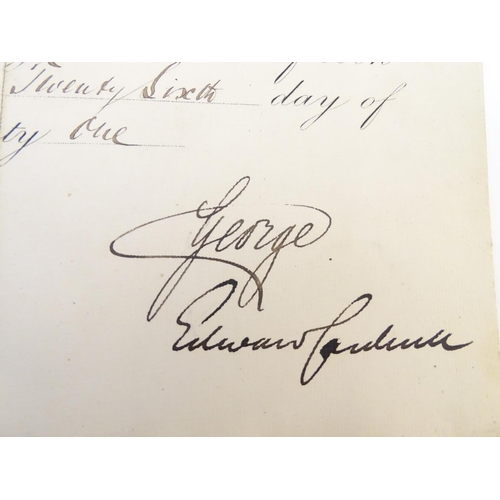 Twenty Sixth day of
ty One
George
Edward Cardwell